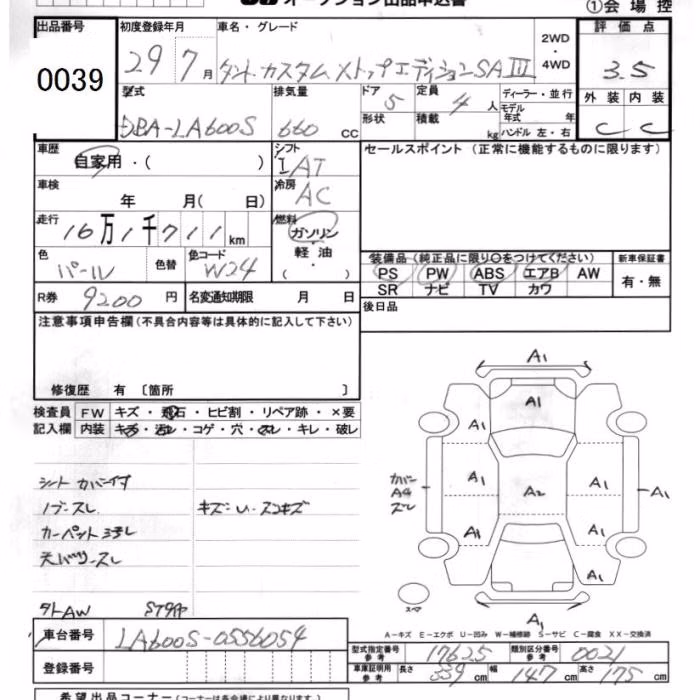 オークション出品申込書
①会場控
出品番号 初度登録年月 車名・グレード 2WD・4WD 評価点
0039 29年 7月 タントカスタム トップエディションSA III 3.5
型式 排気量 ドア 定員 ディーラー・並行 外装 内装
DBA-LA600S 660cc 5 4人 モデル年式 年 C C
形状 積載 kg ハンドル 左・右
車歴 自家用・( ) シフト IAT セールスポイント (正常に機能するものに限ります)
車検 年 月( 日) 冷房 AC
走行 16万1千711km 燃料 ガソリン・軽油・( )
色 パール 色替 色コード W24 装備品 (純正品に限り○をつけてください) 新車保証書
PS PW ABS エアB AW 有・無
SR ナビ TV カワ
R券 9200円 名変通知期限 月 日 後日品
注意事項申告欄 (不具合内容等は具体的に記入して下さい)
修復歴 有 〔箇所 〕
検査員記入欄 FW キズ・飛石・ヒビ割・リペア跡・×要
内装 キズ・汚レ・コゲ・穴・スレ・キレ・破レ
シートカバー付
ノブスレ キズ・U・スコキズ
カーペット汚レ
天バリスレ
A1
A1
A1 A1
カバー A4 スレ A1 A2 A1 A1
A1 A1
A1
スペア A1
A-キズ E-エクボ U-凹み W-補修跡 S-サビ C-腐食 XX-交換済
車台番号 LA600S-0556054 型式指定番号 参考 17625 類別区分番号 参考 0021
登録番号 車庫証明用 参考 長さ 339cm 幅 147cm 高さ 175cm
希望出品コーナー (コーナーは各会場により異なります)